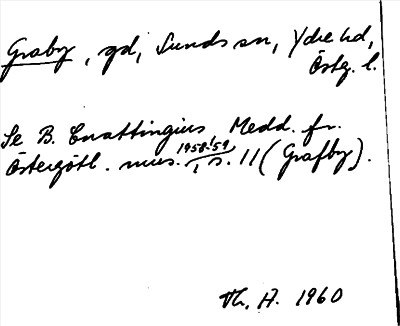 Graby, gd, Sunds sn, Ydre hd,
Östg. l.
Se B. Cnattingius Medd. fr.
Östergötl. mus. 1958-59 s. 11 (Grafby).
Th. A. 1960